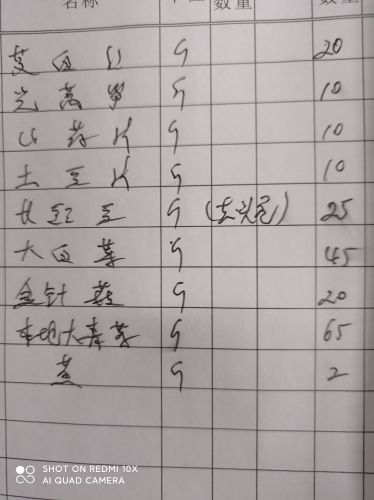 名称 数量 数量
茭白丝 斤 20
光莴笋 斤 10
山药片 斤 10
土豆片 斤 10
长豇豆 斤 (去头尾) 25
大白菜 斤 45
金针菇 斤 20
本地大青菜 斤 65
斤 2
SHOT ON REDMI 10X
AI QUAD CAMERA